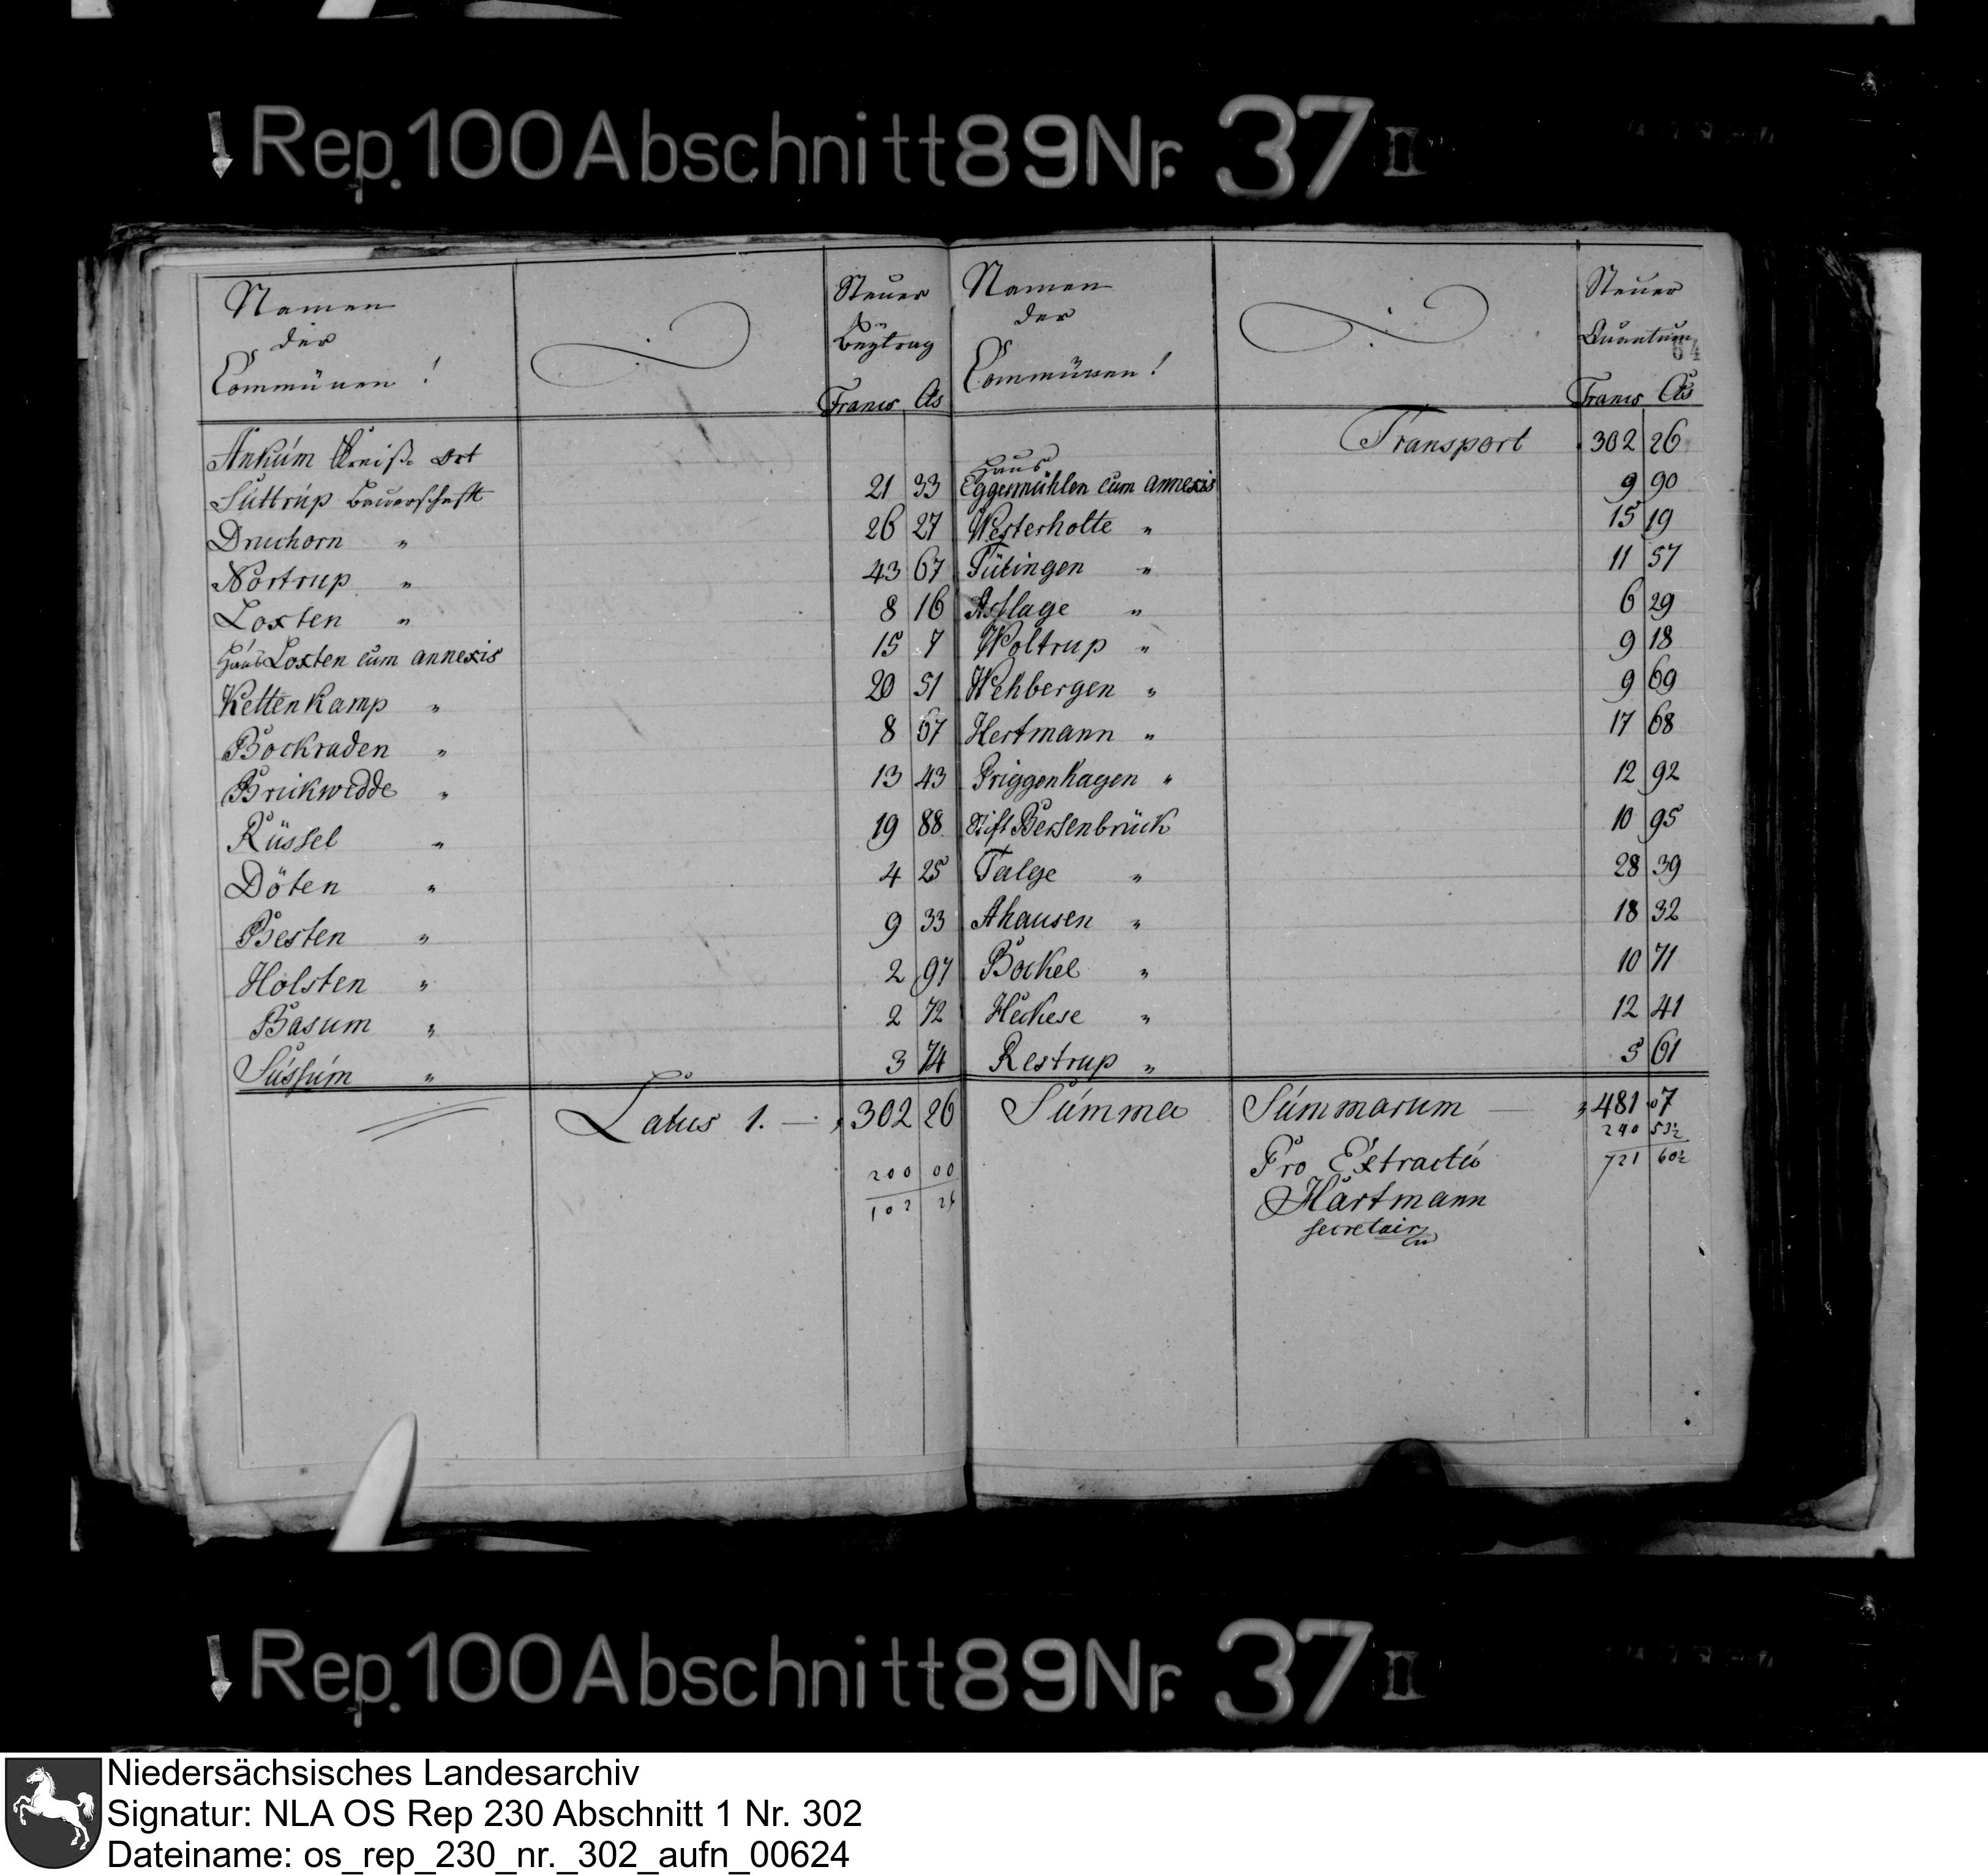 Rep. 100 Abschnitt 89 Nr. 37 II
Namen
der
Commünen!
Steuer
Beytrag
Francs Cts
Ankum Kreis Ort
Suttrup Bauerschaft 21 33
Druchorn " 26 27
Nortrup " 43 67
Loxten " 8 16
Haus Loxten cum annexis 15 7
Kettenkamp " 20 51
Bockraden " 8 67
Brickwedde " 13 43
Rüssel " 19 88
Döten " 4 25
Besten " 9 33
Holsten " 2 97
Basum " 2 72
Sussum " 3 74
Latus 1. — 302 26
200 00
102 26
Namen
der
Commünen!
Steuer
Quantum
64
Francs Cts
Transport 302 26
Haus
Eggermühlen cum annexis 9 90
Westerholte " 15 19
Tütingen " 11 57
Aslage " 6 29
Woltrup " 9 18
Wehbergen " 9 69
Hertmann " 17 68
Priggenhagen " 12 92
Stift Bersenbrück 10 95
Talge " 28 39
Ahausen " 18 32
Bockel " 10 71
Heckese " 12 41
Restrup " 5 61
Summa Summarum — 481 07
240 53½
721 60½
Pro Extractu
Hartmann
secretair
Rep. 100 Abschnitt 89 Nr. 37 II
Niedersächsisches Landesarchiv
Signatur: NLA OS Rep 230 Abschnitt 1 Nr. 302
Dateiname: os_rep_230_nr._302_aufn_00624